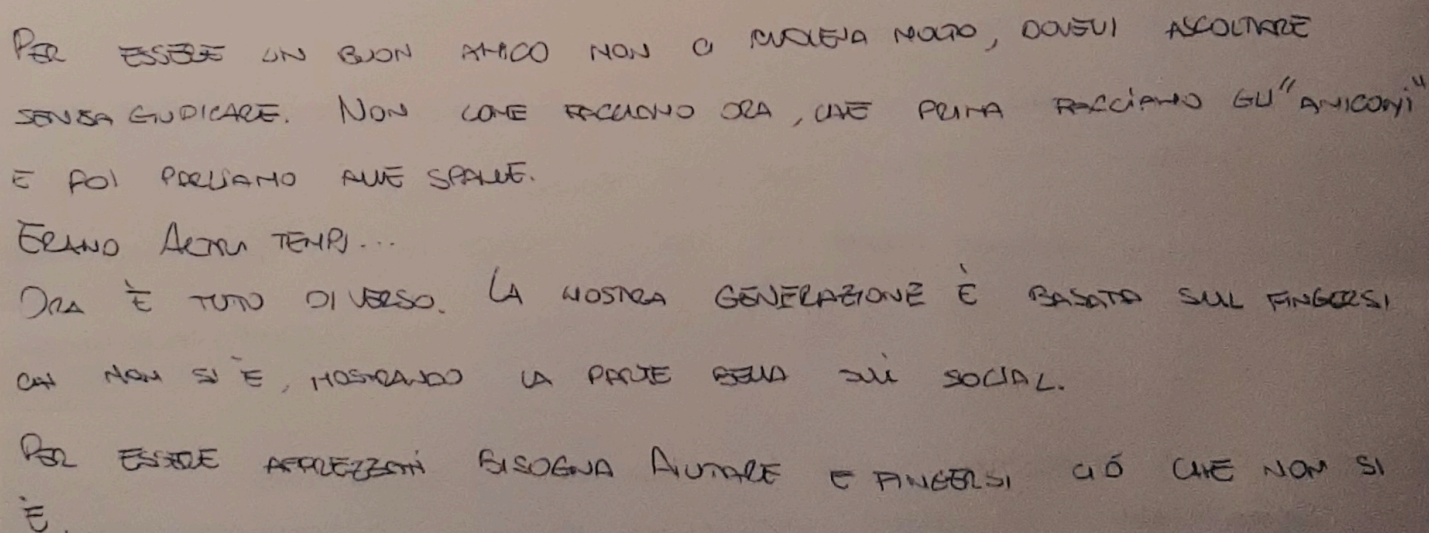 PER ESSERE UN BUON AMICO NON CI VOLEVA MOLTO, DOVEVI ASCOLTARE
SENZA GIUDICARE. NON COME FACCIAMO ORA, CHE PRIMA FACCIAMO GLI "AMICONI"
E POI PARLIAMO ALLE SPALLE.
ERANO ALTRI TEMPI...
ORA È TUTO DIVERSO. LA NOSTRA GENERAZIONE È BASATA SUL FINGERSI
CHI NON SI È, MOSTRANDO LA PARTE BELLA SUI SOCIAL.
PER ESSERE APPREZZATI BISOGNA AIUTARE E FINGERSI CIÓ CHE NON SI
È.